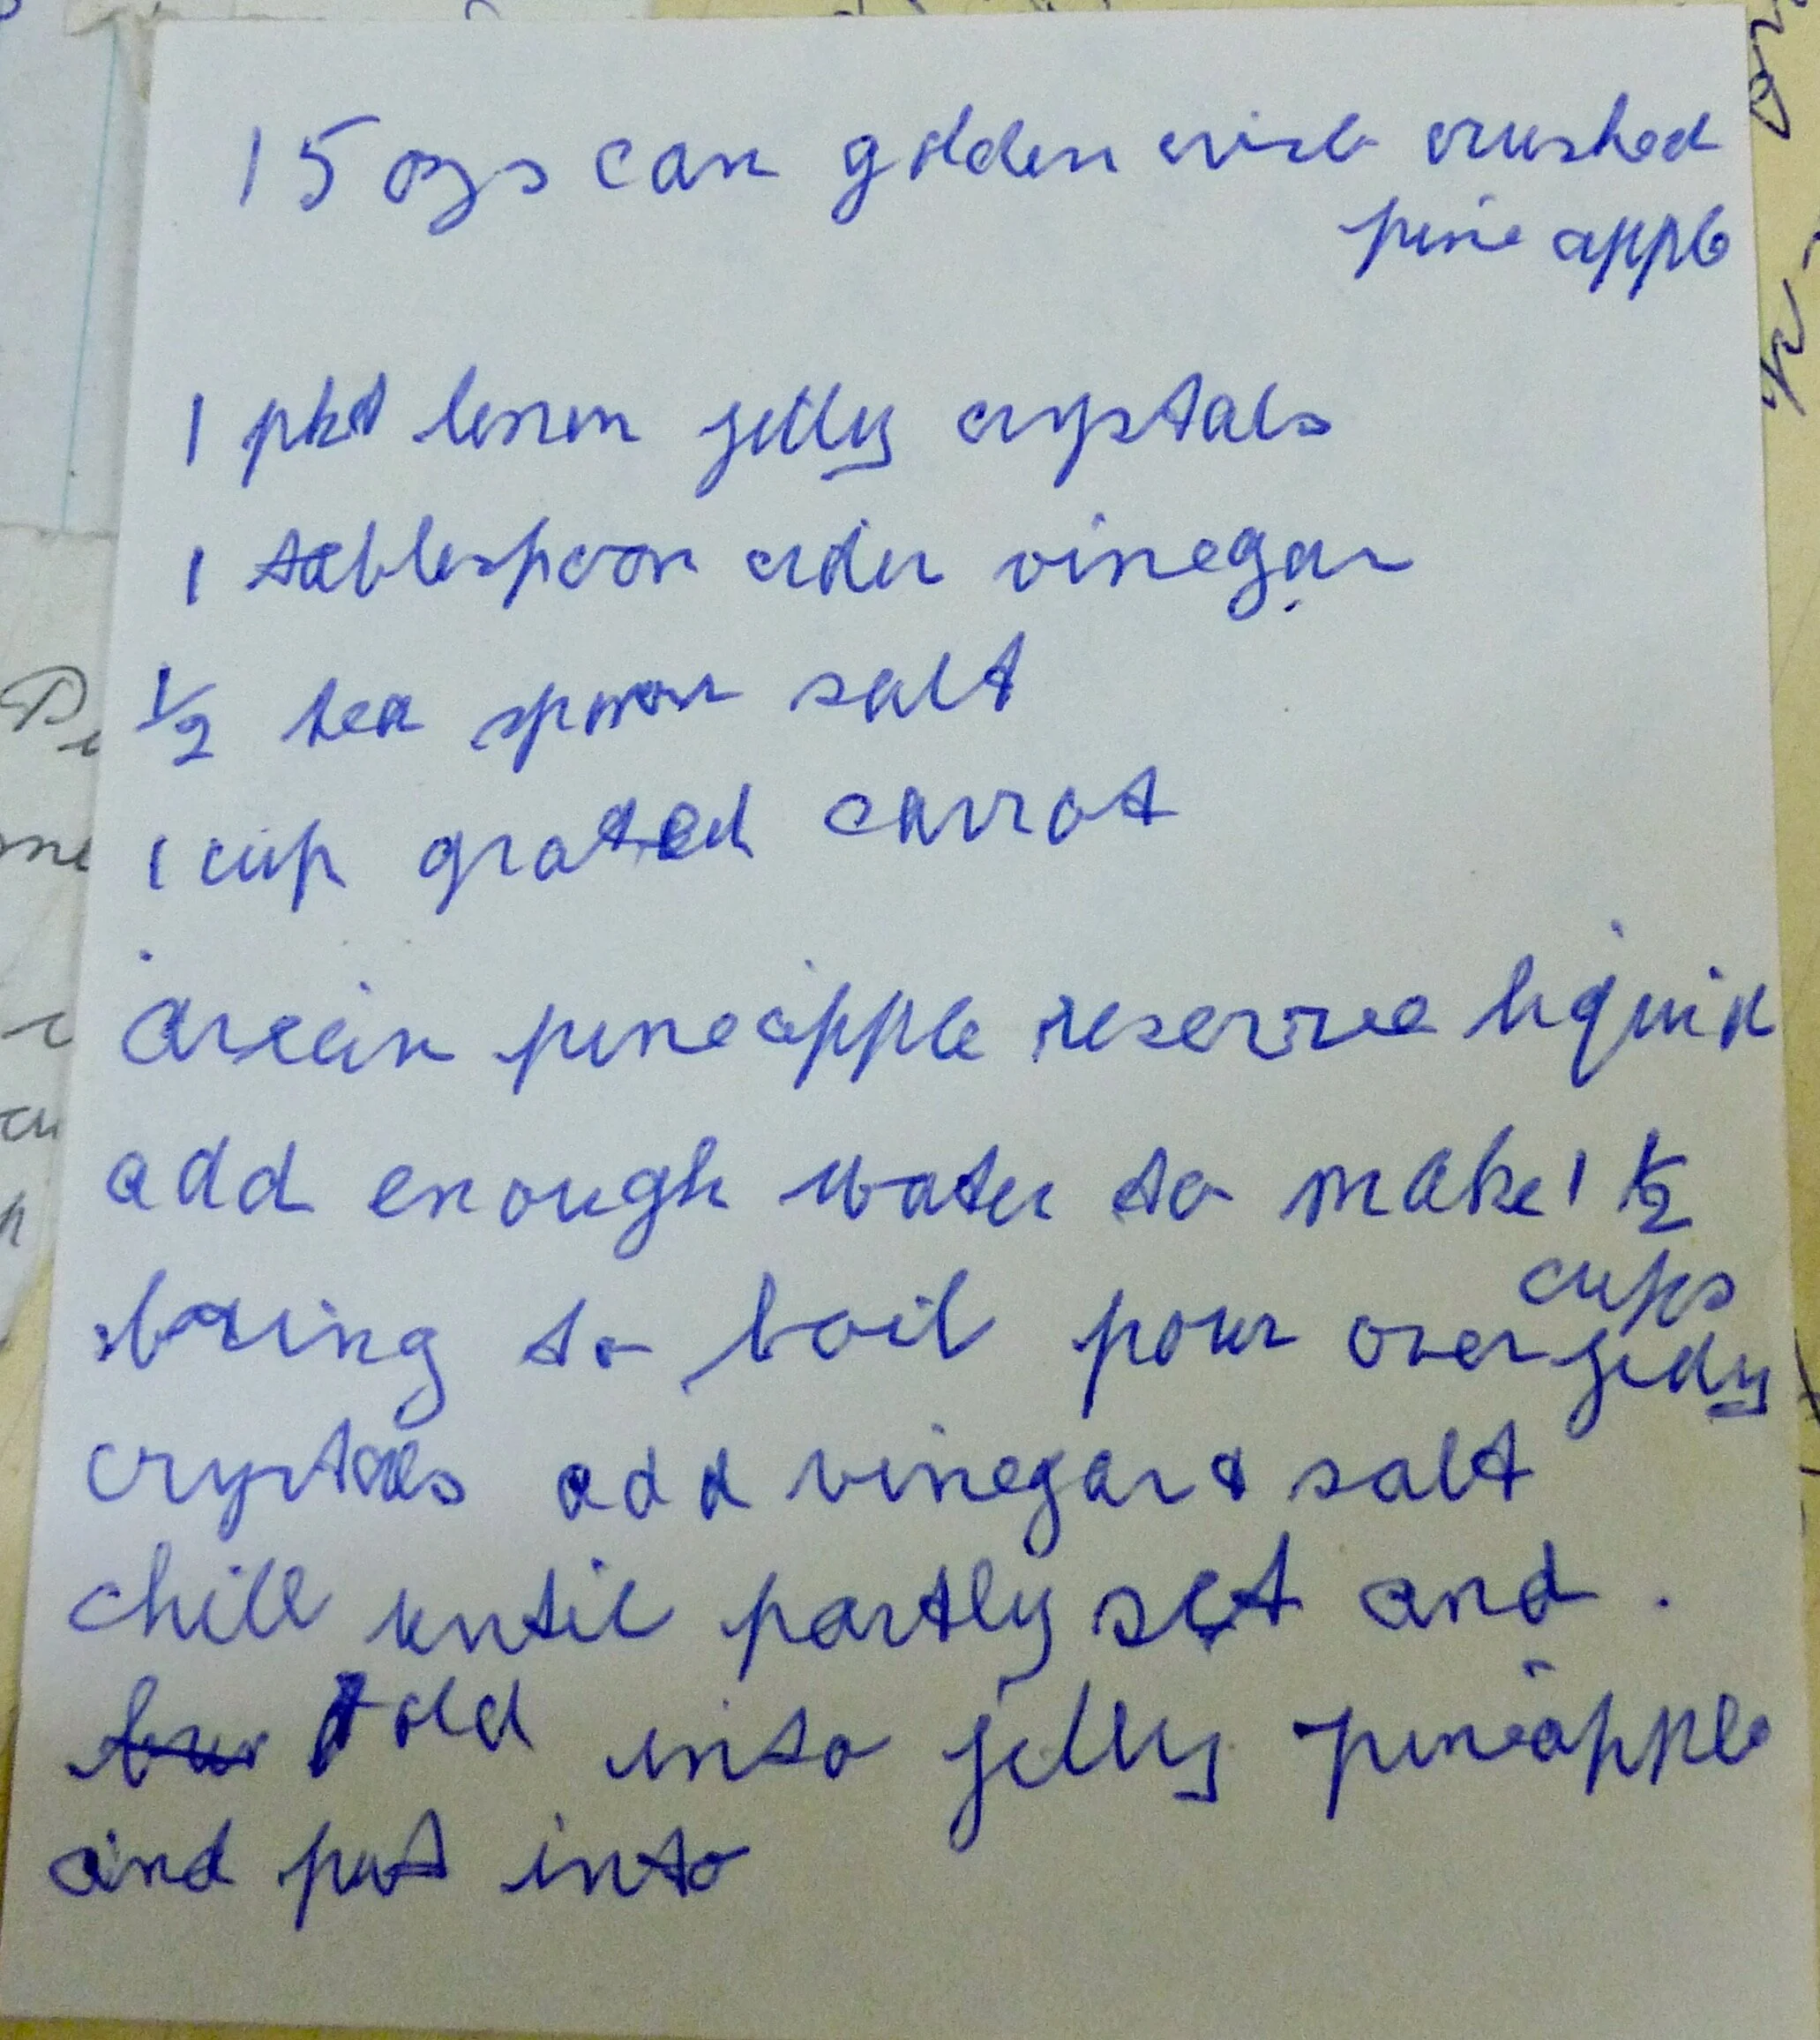 15 ozs can golden crushed
pine apple
1 pkt lemon jelly crystals
1 tablespoon cider vinegar
1/2 tea spoon salt
1 cup grated carrot
drain pineapple reserve liquid
add enough water to make 1 1/2
cups
bring to boil pour over jelly
crystals add vinegar & salt
chill until partly set and .
fold into jelly pineapple
and put into